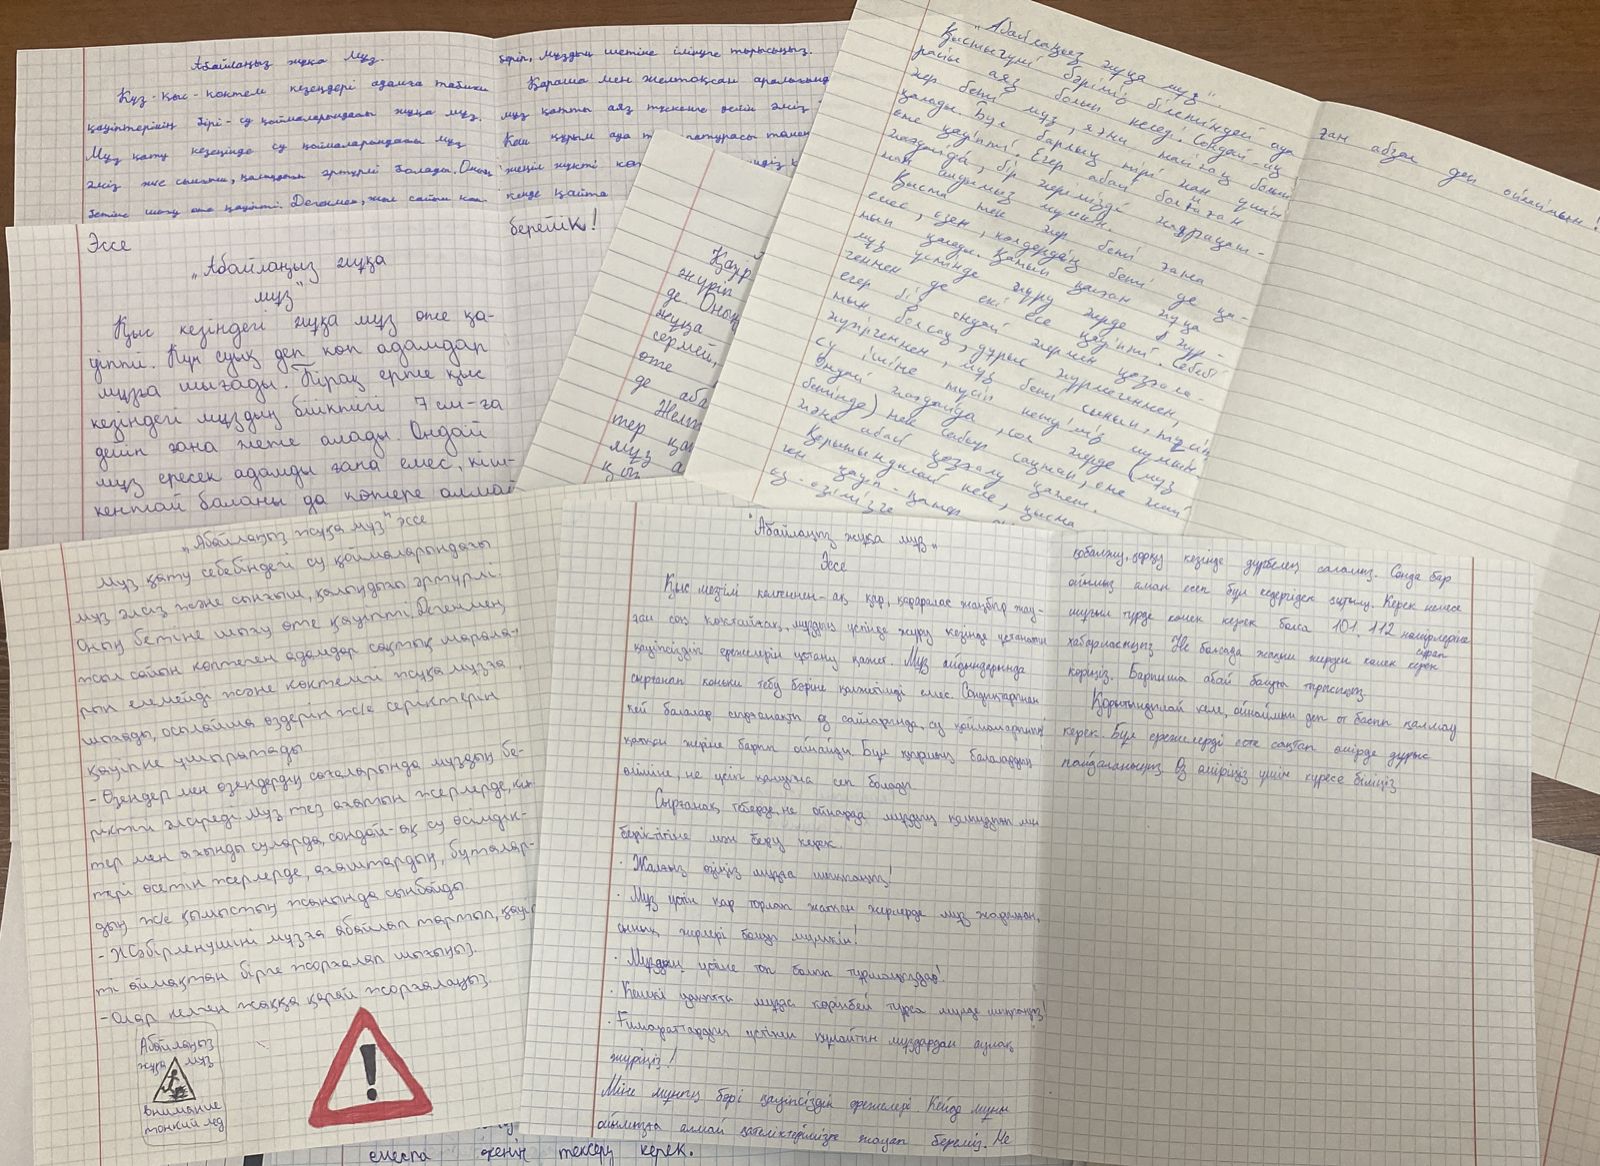 Абайлаңыз жұқа мұз.
Күз-қыс-көктем кезеңдері адамға табиғи
қауіптерінің бірі - су қоймаларындағы жұқа мұз.
Мұз қату кезеңінде су қоймаларындағы мұз
әлсіз және сынғыш, қалыңдығы әртүрлі болады. Оның
бетіне шығу өте қауіпті. Дегенмен, жыл сайын көп
беріп, мұздың шетіне ілінуге тырысыңыз.
Қараша мен желтоқсан аралығында
мұз қатты аяз түскенге дейін әлсіз
Кеш құрым ауа
жеңіл жүкті
кезде қайта
берейік!
Эссе
„Абайлаңыз жұқа
мұз"
Қыс кезіндегі жұқа мұз өте қа-
уіпті. Күн суық деп көп адамдар
мұзға шығады. Бірақ ерте қыс
кезіндегі мұздың биіктігі 7 см-ға
дейін ғана жете алады. Ондай
мұз ересек адамды ғана емес, кіш-
кентай баланы да көтере алмай
Қазір
жүріп
де. Оның
жұқа
сермей,
өте
де аба
Желт
тер қа
мұз а
„Абайлаңыз жұқа мұз".
Қыстыгүні бәріміз білетіндей ауа
райы аяз болып келеді. Сондай-ақ
жер беті мұз, яғни тайғақ болып
қалады. Бұл барлық тірі жан үшін
өте қауіпті. Егер абай болмаған
жағдайда, бір жерімізді жарақат-
тап алуымыз мүмкін.
Қыста тек жер беті ғана
емес, өзен, көлдердің беті де қа-
тып қалады. Қатып қалған жұқа
мұз үстінде жүру жерде жүр-
геннен де екі есе қауіпті. Себебі
егер біз ондай жермен қозғала-
тын болсақ, дұрыс жүрмегеннен,
жүгіргеннен, мұз беті сынып, түсіп
су ішіне түсіп кетуіміз мүмкін.
Ондай жағдайда, сол жерде (мұз
бетінде) тек сабыр сақтап, өте жай
және абай қозғалу қажет.
Қорытындылай келе, қыста
көп қауіп-қатер
өз-өзімізге
ған абзал деп ойлаймын!
„Абайлаңыз жұқа мұз" эссе
Мұз қату себебіндегі су қоймаларындағы
мұз әлсіз және сынғыш, қалыңдығы әртүрлі.
Оның бетіне шығу өте қауіпті. Дегенмең
жыл сайын көптеген адамдар сақтық шарала-
рын елемейді және көктемгі жұқа мұзға
шығады, осылайша өздерін ж/е серіктерін
қауіпке ұшыратады
- Өзендер мен өзендердің сағаларында мұздың бе-
ріктігі әлсіреді. Мұз тез ағатын жерлерде, кілт
тер мен ағынды суларда, сондай-ақ су өсімдік-
тері өсетін жерлерде, ағаштардың, бұталар-
дың ж/е қамыстың жанында сынбайды
- Жәбірленушіні мұзға абайлап тартып, қауіп
ті аймақтан бірге жорғалап шығыңыз.
- Олар келген жаққа қарай жорғалаңыз.
Абайлаңыз
жұқа мұз
внимание
тонкий лед
"Абайлаңыз жұқа мұз„
Эссе
Қыс мезгілі келгеннен-ақ қар, қараралас жаңбыр жау-
ған соң көктайғақ, мұздың үстінде жүру кезінде ұстанатын
қауіпсіздік ережелерін ұстану қажет. Мұз айдындарында
сырғанап коньки тебу бәріне қолжетімді емес. Сондықтарынан
кей балалар сырғанақты өз сайларында, су қоймаларының
қатқан жеріне барып ойнайды. Бұл қаршай балалардың
өліміне, не үсіп қалуына сеп болады.
Сырғанақ тебгерде, не ойнарда мұздың қалыңдығы мен
беріктігіне мән беру керек.
· Жалғыз өзіңіз мұзға шықпаңыз!
· Мұз үстін қар торлап жатқан жерлерде мұз жарылған,
сынық жерлері болуы мүмкін!
· Мұздың үстіне топ болып тұрмаңыздар!
· Кешкі уақытта мұзға көрінбей тұрса мүлде шықпаңыз!
· Ғимараттардың үстінен құлайтын мұздардан аулақ
жүріңіз!
Міне мұның бәрі қауіпсіздік ережелері Кейде мұны
ойымызға алмай қателіктерімізге жауап береміз. Не
қобалжу, қорқу кезінде дүрбелең саламыз. Сонда бар
ойымыз аман есен бұл кедергіден шығу. Керек немесе
шұғыл түрде көмек керек болса 101, 112 нөмірлеріне
хабарласыңыз Не болсада жақын жерден көмек сұрап
көріңіз. Барынша абай болуға тырысыңыз.
Қорытындылай келе, ойнаймын деп от басып қалмау
керек. Бұл ережелерді есте сақтап өмірде дұрыс
пайдаланыңыз. Өз өміріңіз үшін күресе біліңіз
емеспа екенін тексеру керек.